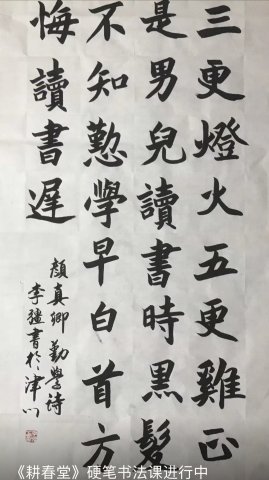 三更燈火五更雞正
是男兒讀書時黑髮
不知勤學早白首方
悔讀書遲
顏真卿勤學詩
李強書於津门
《耕春堂》硬笔书法课进行中